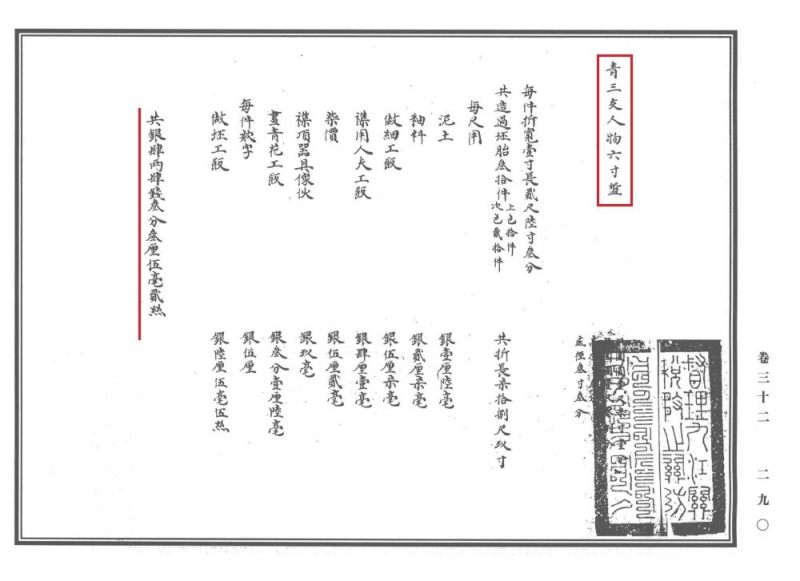 卷三十二 二九〇
青三友人物六寸盤
督理九江關
稅務之關防
底徑叁寸叁分
每件折寬壹寸長貳尺陸寸叁分
共造過坯胎叁拾件 上色拾件 次色貳拾件 共折長柒拾捌尺玖寸
每尺用
泥土 銀壹厘陸毫
釉料 銀貳厘柒毫
做細工飯 銀伍厘柒毫
襍用人夫工飯 銀肆厘壹毫
柴價 銀伍厘貳毫
襍項器具傢伙 銀玖毫
畫青花工飯 銀叁分壹厘陸毫
每件款字 銀伍厘
做坯工飯 銀陸厘伍毫伍絲
共銀肆両肆錢叁分叁厘伍毫貳絲